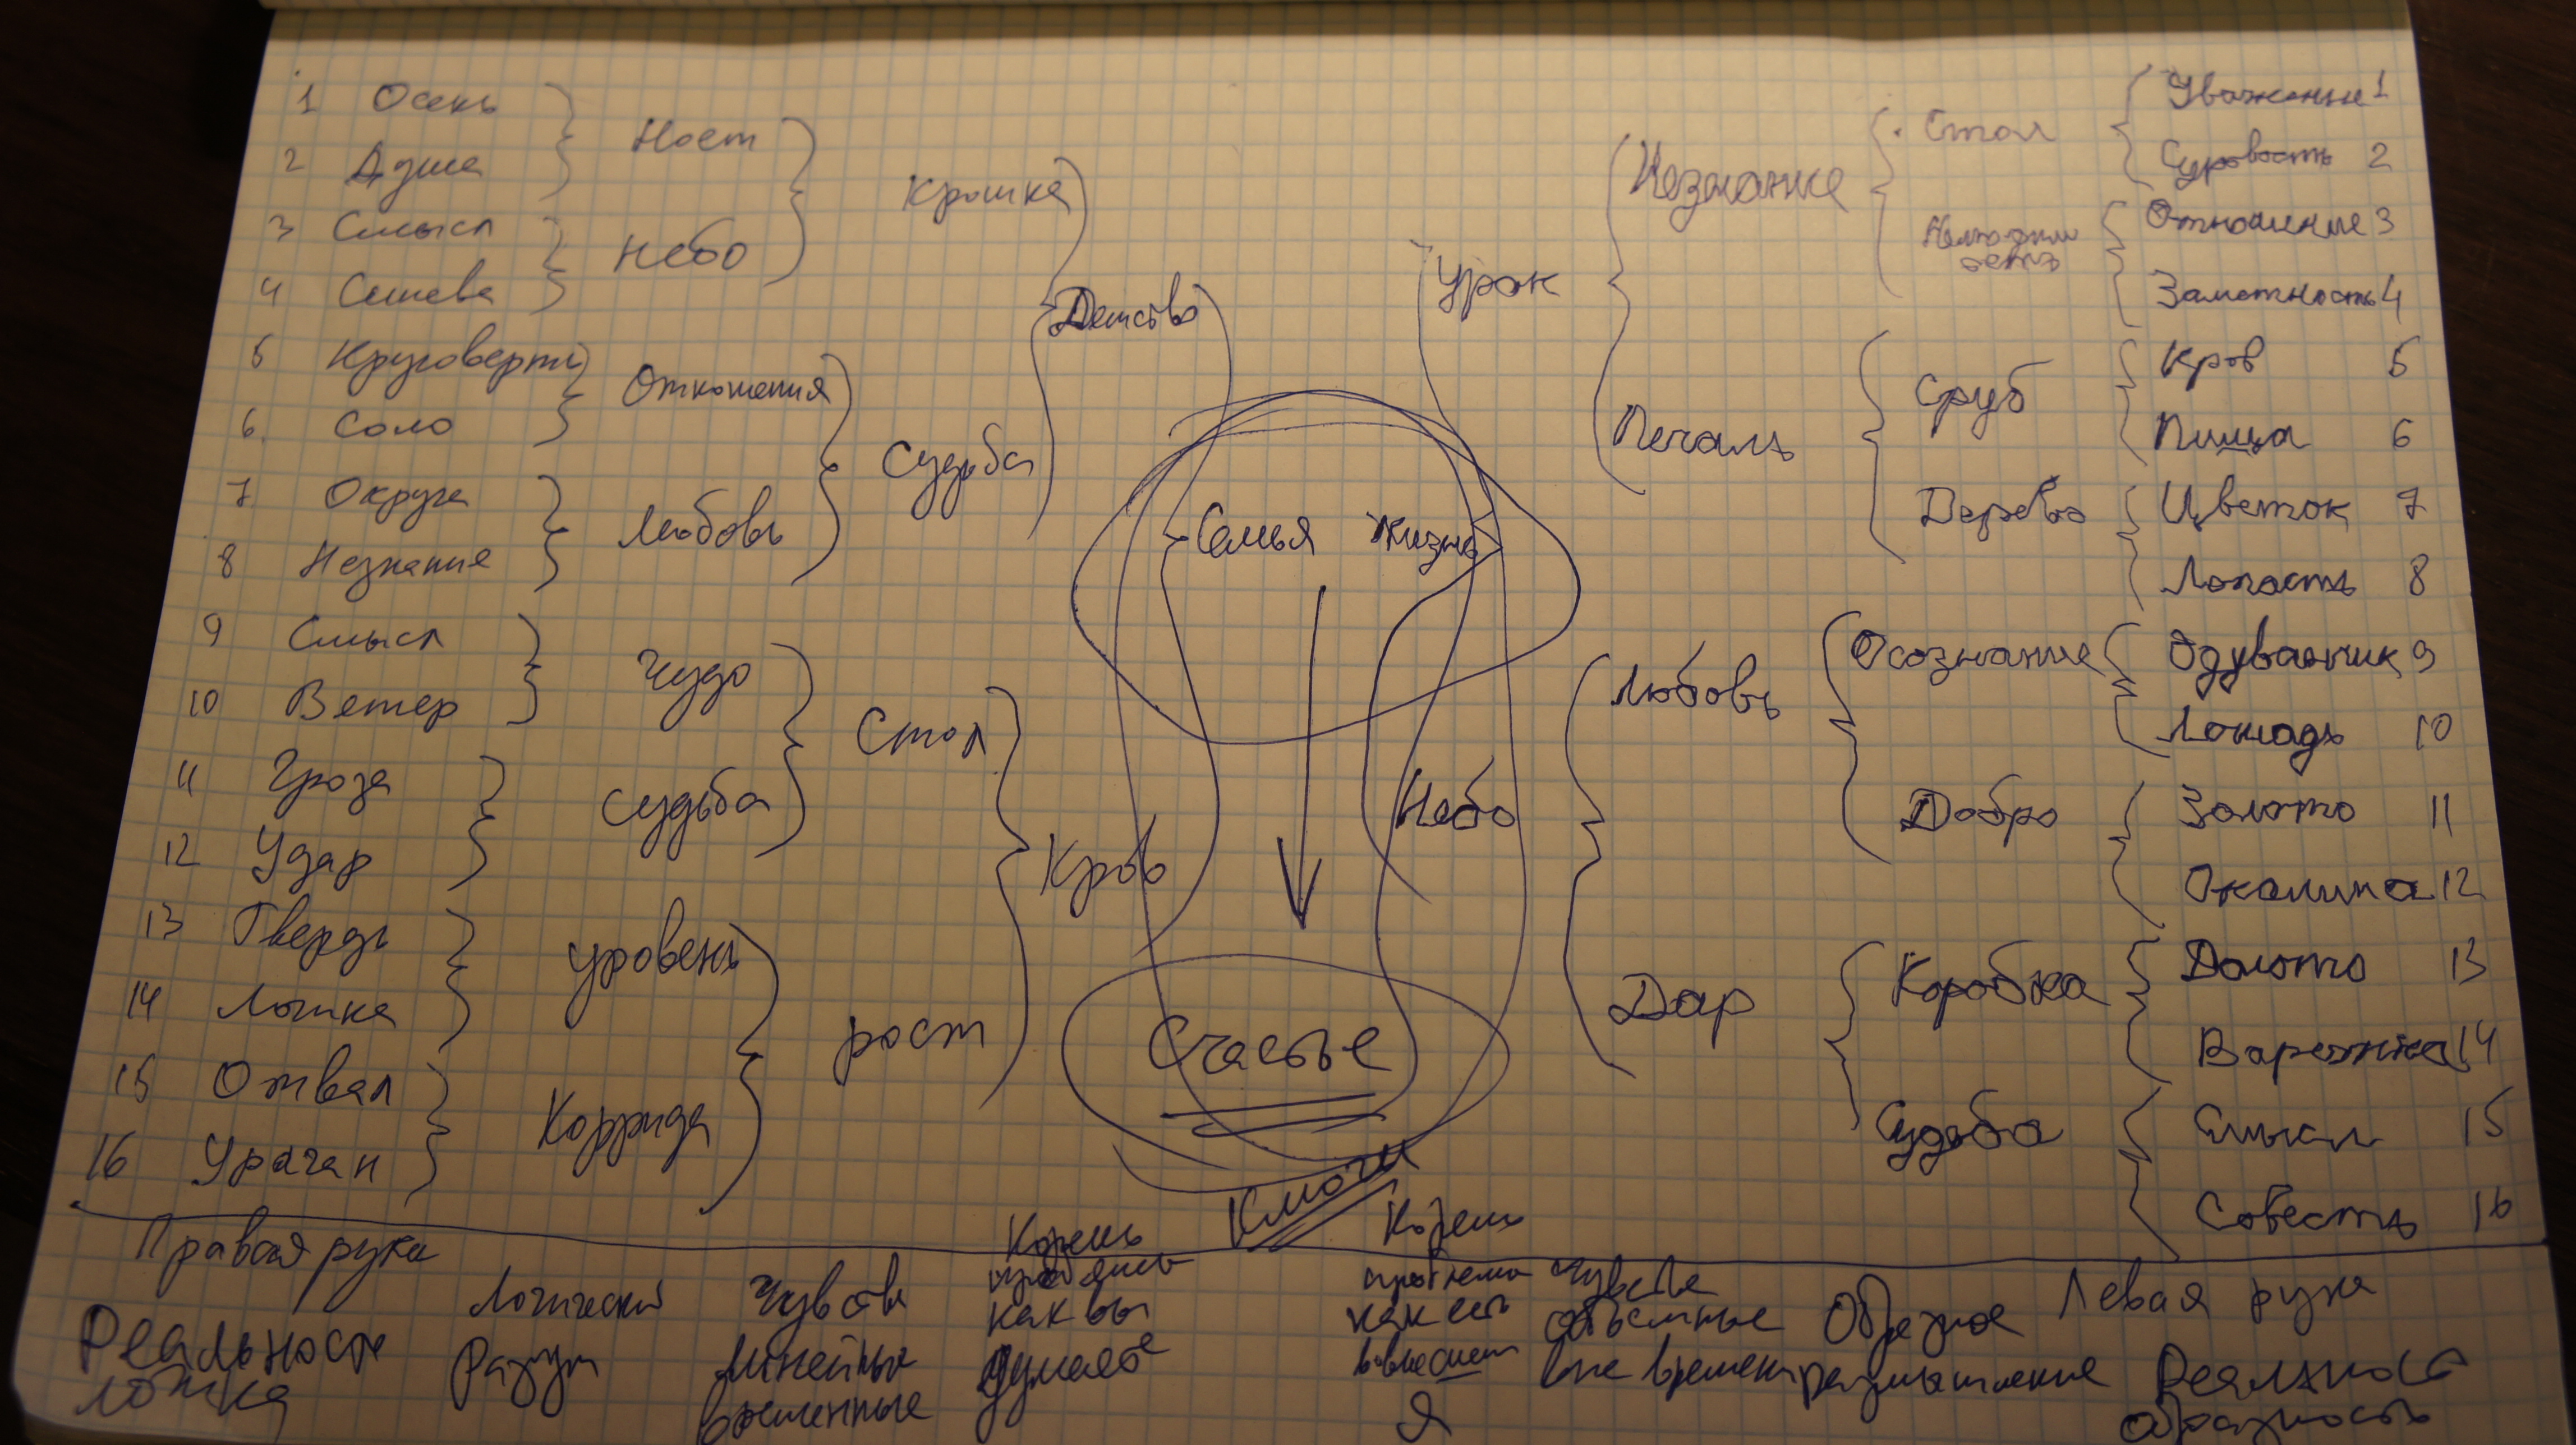 1 Осень
2 Душа
3 Смысл
4
5 Круговерть
6 Соло
7 Округа
8 Незнание
9 Смысл
10 Ветер
11 Гроза
12 Удар
13 Твердь
14 Ложка
15 Отвал
16 Ураган
Небо
Отношения
Любовь
Чудо
Судьба
Уровень
Коррида
Крошка
Судьба
Стол
рост
Детство
Кров
Семья Жизнь
Счастье
Ключи
Урок
Небо
Незнание
Печаль
Любовь
Дар
Стол
Сруб
Дерево
Осознание
Добро
Коробка
Судьба
Уважение 1
Суровость 2
Отношение 3
Заметность 4
Кров 5
Пища 6
Цветок 7
Лопасть 8
Одуванчик 9
Лошадь 10
Золото 11
Околица 12
Долото 13
Варежка 14
Смысл 15
Совесть 16
Правая рука
Реальность
Логический
Разум
Чувства
Линейные
временные
Корень
как вы
думаете
Корень
проблема
как есть
Я
Чувства
объемные
вне времени
Образное
размышление
Левая рука